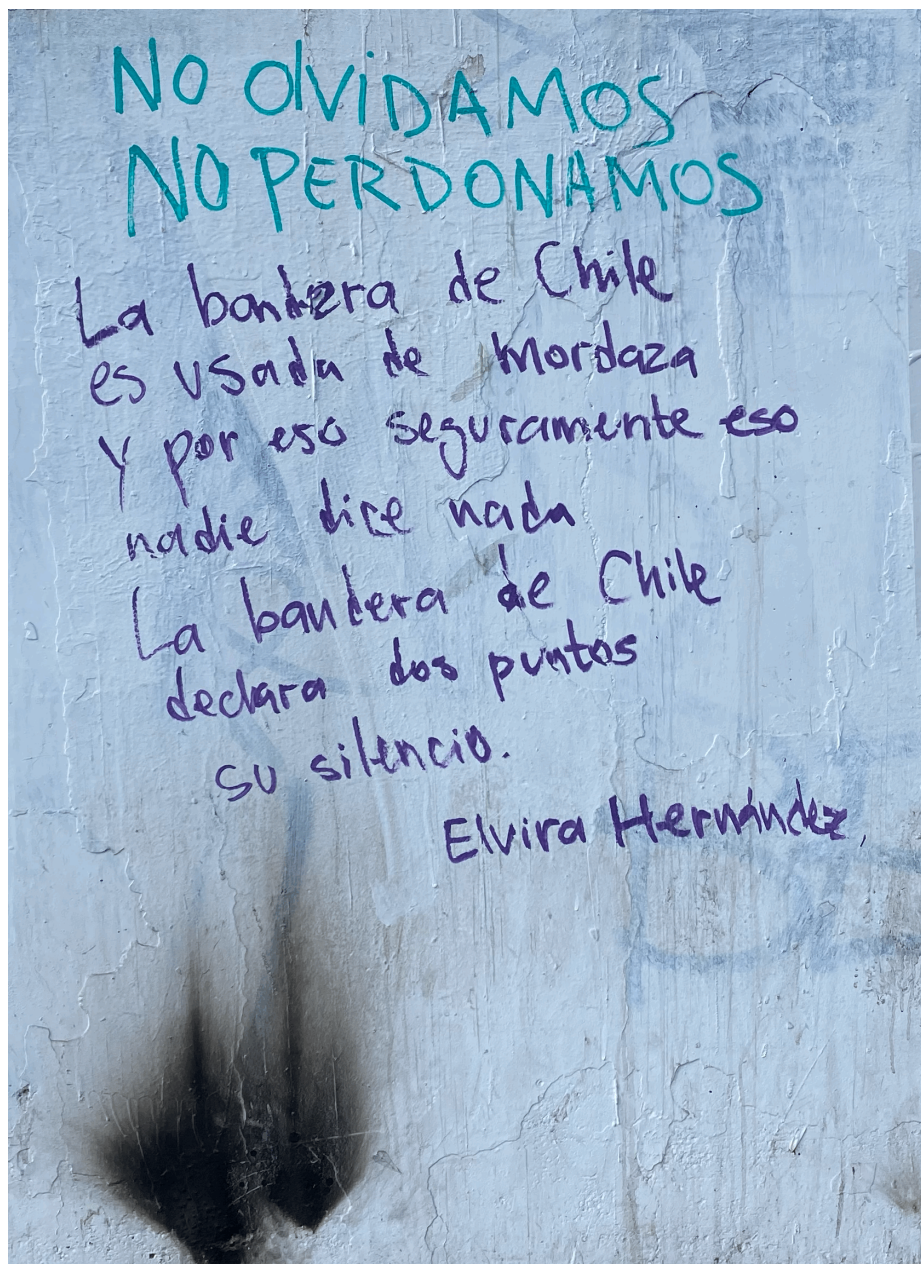 NO OlViDAMOS
NO PERDONAMOS
La bandera de Chile
es usada de mordaza
Y por eso seguramente eso
nadie dice nada
La bandera de Chile
declara dos puntos
su silencio.
Elvira Hernández,